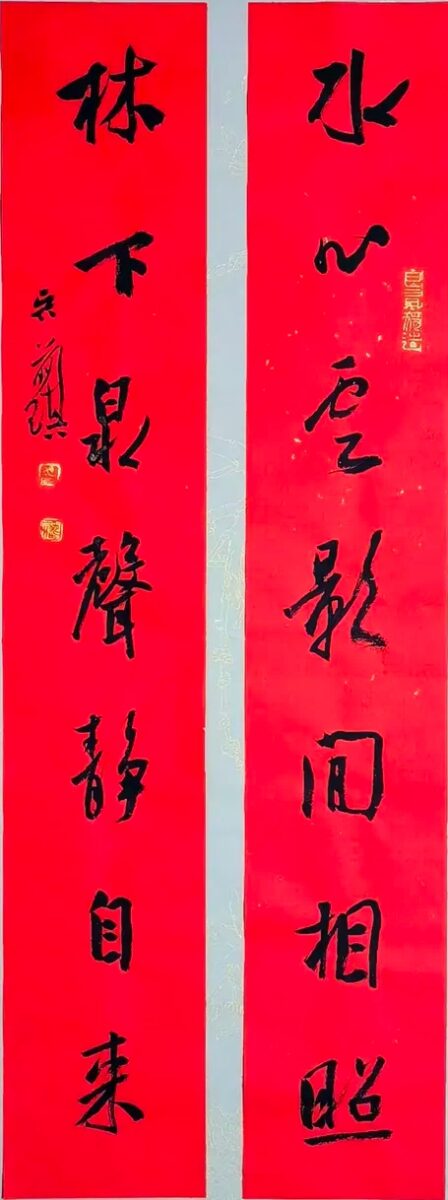 水心雲影閒相照
林下泉聲静自来